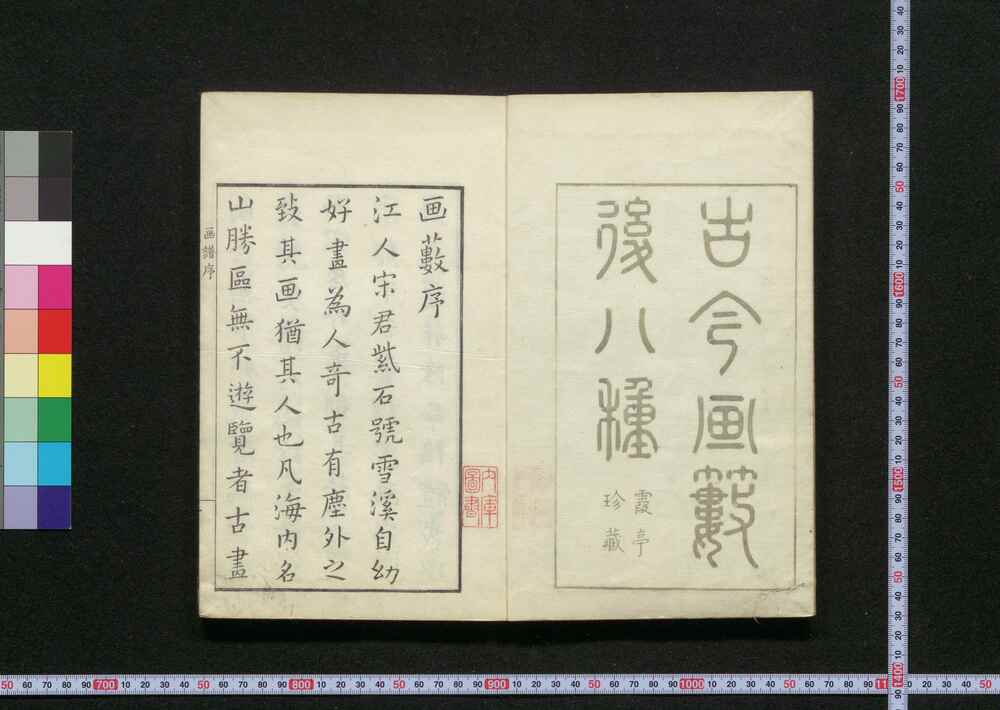 古今画藪
後八種
霞亭
珍藏
画藪序
江人宋君紫石號雪溪自幼
好畫為人奇古有塵外之
致其画猶其人也凡海内名
山勝區無不遊覽者古畫
画譜序
文庫
圖書